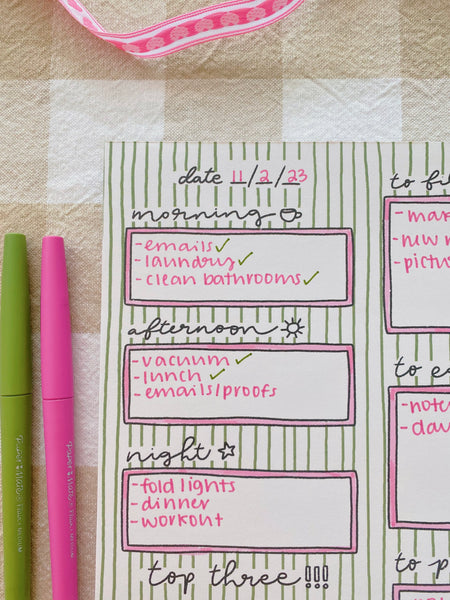 date 11/2/23
morning
-emails✓
-laundry✓
-clean bathrooms✓
afternoon
-vacuum ✓
-lunch ✓
-emails/proofs
night
-fold lights
-dinner
-workout
top three !!!
to
-new
to
-note
to
Paper Mate
Paper Mate